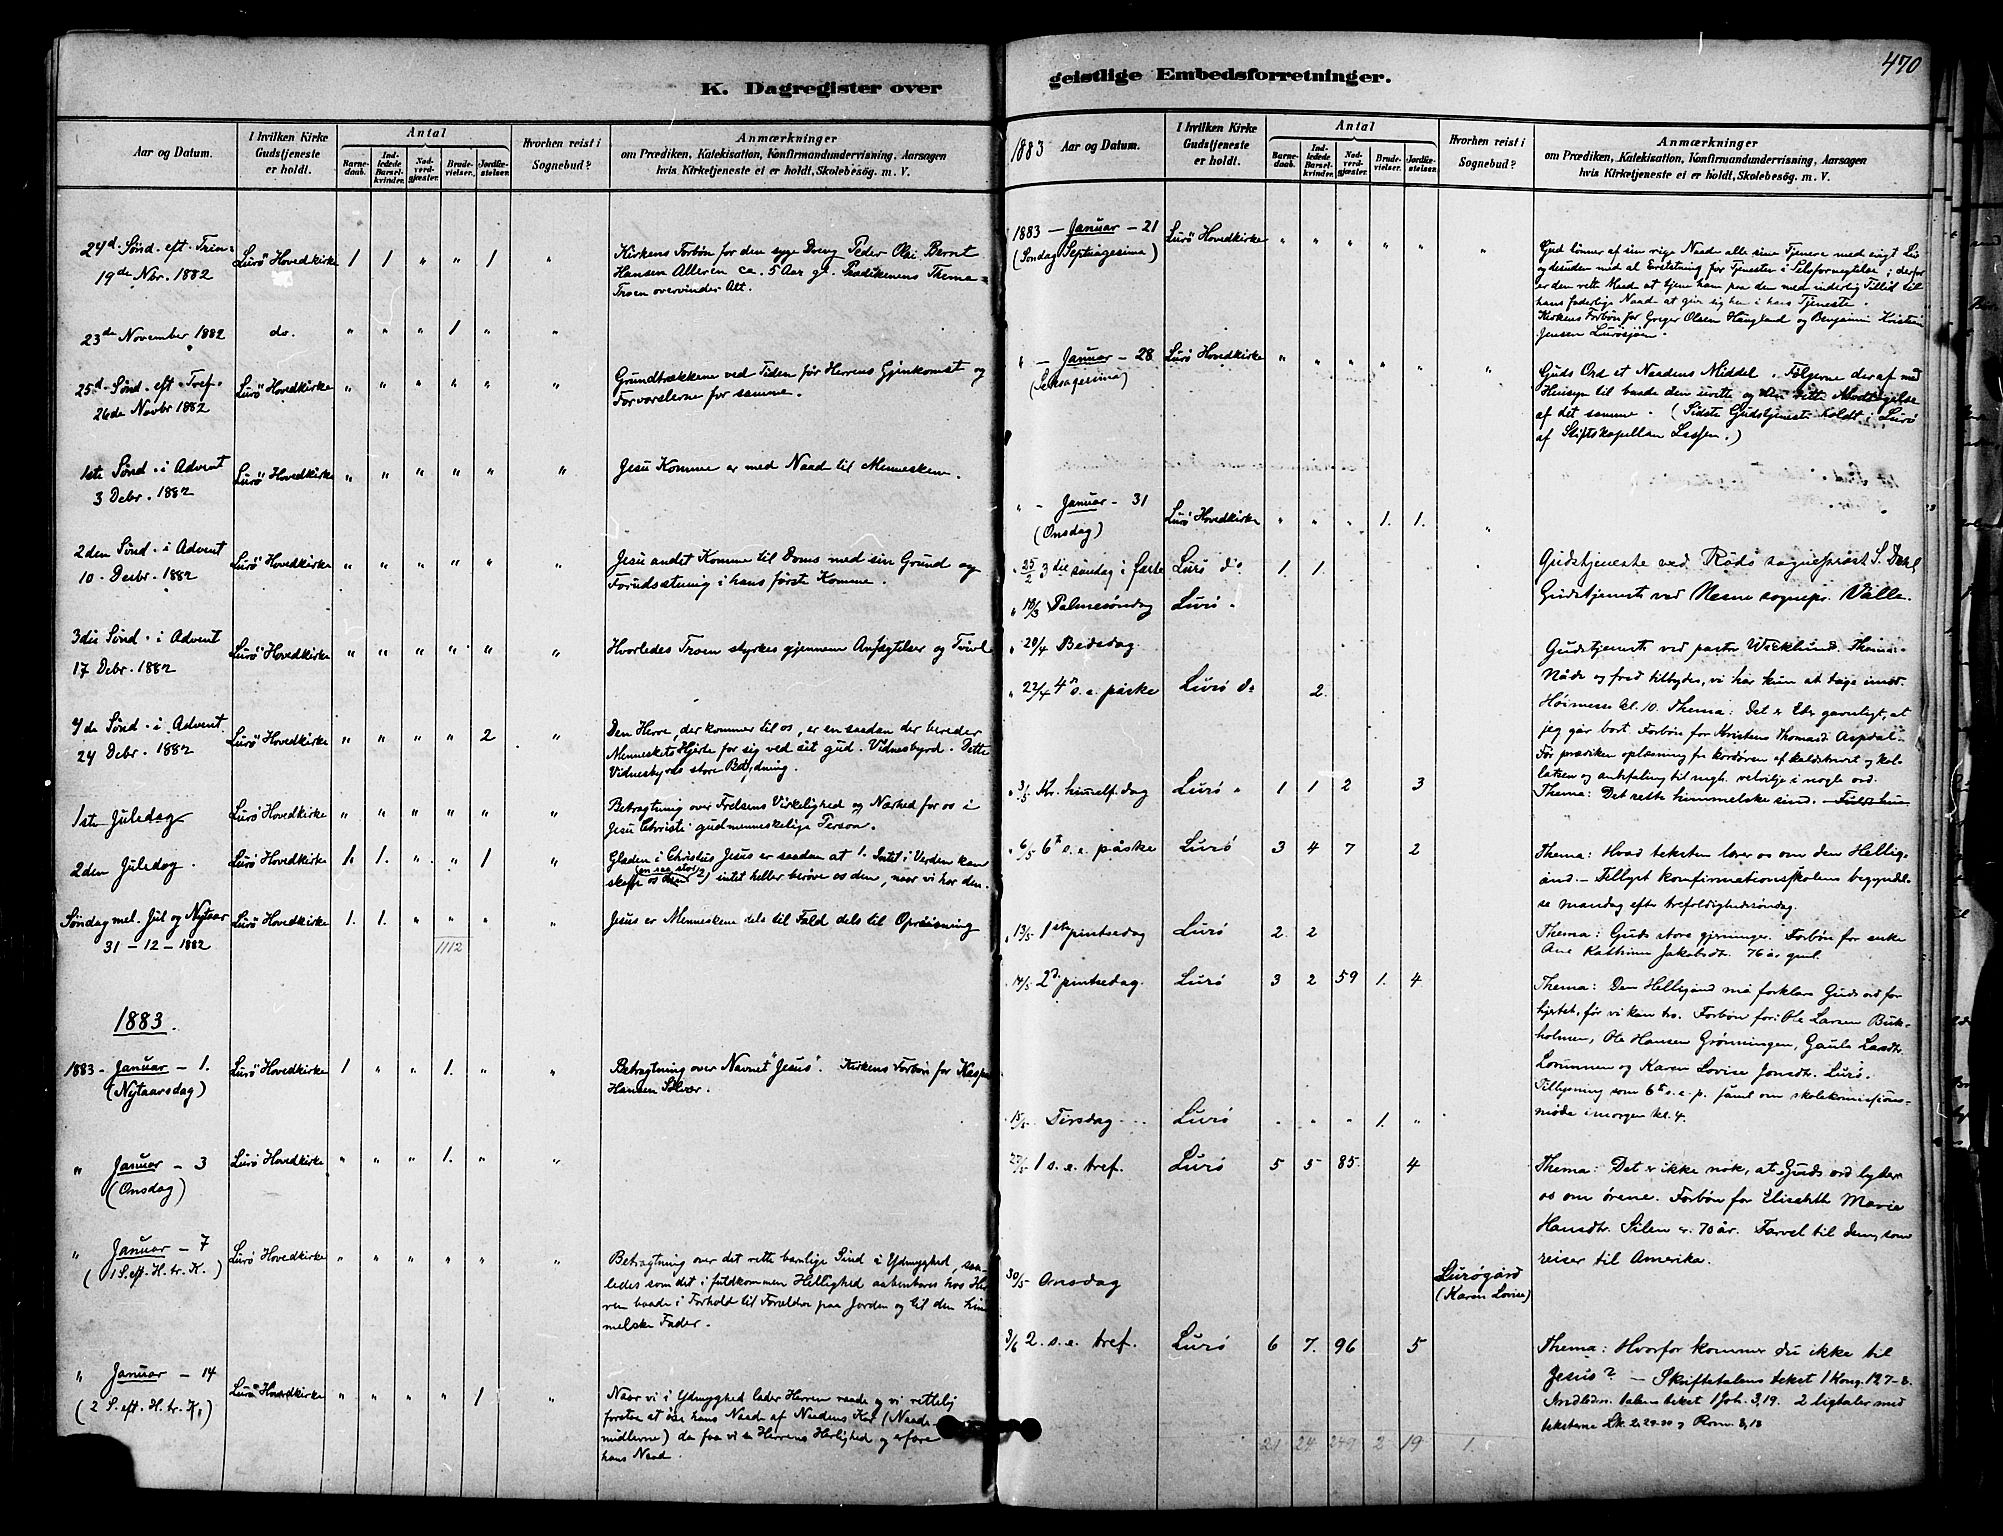 K. Dagregister over
Aar og Datum.
I hvilken Kirke Gudstjeneste er holdt.
Antal
Barnedaab.
Indledede Barselkvinder.
Nadverdgjæster.
Brudevielser.
Jordfæstelser.
Hvorhen reist i Sognebud?
Anmærkninger
om Prædiken, Katekisation, Konfirmandundervisning, Aarsagen
hvis Kirketjeneste ei er holdt, Skolebesøg. m. V.
24d. Sønd. eft. Trin- Lurö Hovedkirke 1 1 " " 1 " Kirkens Forbøn for den syge Dreng Peder Olai Bernt
19de Nbr. 1882 Hansen Alleren ca. 5 Aar gl. Prædikenens Thema =
Troen overvinder Alt.
23de November 1882 do. " " " 1 " "
25d. Sønd. eft. Tref. Lurö Hovedkirke " " " " " " Grundtrækkene ved Tiden før Herrens Gjenkomst og
26de Novbr 1882 Forvarslerne for samme.
1ste Sønd. i Advent Lurö Hovedkirke " " " " " " Jesu Komme er med Naad til Menneskene.
3 Debr. 1882
2den Sønd. i Advent Lurö Hovedkirke " " " " " " Jesu andet Komme til Doms med sin Grund og
10. Decbr. 1882 Forudsætning i hans første Komme.
3die Sønd. i Advent Lurö Hovedkirke " " " " " " Hvorledes Troen styrkes gjennem Anfægtelser og Tvivl
17 Debr. 1882
4de Sønd. i Advent Lurö Hovedkirke " " " " 2 " Den Herre, der kommer til os, er en saadan der bereder
24 Debr. 1882 Menneskets Hjerte for sig ved sit gud. Vidnesbyrd. Dette
Vidnesbyrds store Betydning.
1ste Juledag Lurö Hovedkirke " " " " " " Betragtning over Frelsens Virkelighed og Nærhed for os i
Jesu Christi gudmenneskelige Person.
2den Juledag. Lurö Hovedkirke 1. 1. " " 1 " Glæden i Christus Jesus er saadan at 1. Intet i Verden kan
skaffe os den (en saa stor) 2) intet heller berøve os den, naar vi har den.
Søndag mel. Jul og Nytaar Lurö Hovedkirke 1. 1. " " " " Jesus er Menneskene dels til Fald dels til Opreisning
31 - 12 - 1882 1112
1883.
1883 - Januar - 1. Lurö Hovedkirke 1 " " 1. " " Betragtning over Navnet "Jesus". Kirkens Forbøn for Kasper
(Nytaarsdag) Hansen Selvær.
" Januar - 3 Lurö Hovedkirke " " " 1. " "
(Onsdag)
" Januar - 7 Lurö Hovedkirke " " " " " Betragtning over det rette barnlige Sind i Ydmyghed, saa-
(1 S. eft. H. tr. K.) ledes som det i fuldkommen Hellighed aabenbares hos Her-
ren baade i Forhold til Forældre paa Jorden og til den him
melske Fader.
" Januar - 14 Lurö Hovedkirke " " " " 1 " Naar vi i Ydmyghed lader Herren raade og vi rettelig
(2 S. eft. H. tr. K.) forstaa at öse hans Naade af Naadens Kar (Naade-
midlerne) da faa vi se Herrens Herlighed og erfare
hans Naad.
geistlige Embedsforretninger.
470
1883 Aar og Datum.
I hvilken Kirke Gudstjeneste er holdt.
Antal
Barnedaab.
Indledede Barselkvinder.
Nadverdgjæster.
Brudevielser.
Jordfæstelser.
Hvorhen reist i Sognebud?
Anmærkninger
om Prædiken, Katekisation, Konfirmandundervisning, Aarsagen
hvis Kirketjeneste ei er holdt, Skolebesøg. m. V.
1883 - Januar - 21 Lurö Hovedkirke " " " " " " Gud lønner af sin rige Naade alle sine Tjenere med evigt Liv
(Søndag Septuagesima) og desuden med al Erstatning for Tjenesten i Selvfornegtelse; derfor
er den rette Maade at tjene ham paa den med inderlig Tillid til
hans faderlige Naade at give sig hen i hans Tjeneste.
Kirkens Forbøn for Greger Olsen Haugland og Benjamin Kristian
Jensen Lurösjøen.
" - Januar - 28 Lurö Hovedkirke " " " " " " Guds Ord et Naadens Middel. Følgerne deraf med
(Sexagesima) Hensyn til baade den urette og den rette Modtagelse
af det samme. (Sidste Gudstjeneste holdt i Lurö
af Stiftskapellan Lassen.)
" - Januar - 31 Lurö Hovedkirke " " " 1. 1. "
(Onsdag)
" 25/2 3die søndag i faste Lurö do 1. 1. Gudstjeneste ved Rödö sogneprest S. Dahl
" 18/3 Palmesøndag Lurö " Gudstjeneste ved Nesne sognepr. Valle.
" 20/4 Bededag. Gudstjeneste ved pastor Wicklund. Thema:
" 22/4 4de s. e. påske Lurö do 2. Nåde og fred tilbydes, vi har kun at tage imod.
Høimesse kl. 10. Thema: Det er Eder gavnligt, at
jeg går bort. Forbøn for Kristens Thomasd. Aspdal.
Før prædiken oplæsning fra kordören af kaldsbrevet og kol-
latsen og anbefaling til mgh. velvilje i nogle ord.
" 3/5 Kr. himmelf. dag Lurö " 1 1 2 3 Thema: Det rette himmelske sind.
" 6/5 6te s. e. påske Lurö 3 4 7 2 Thema: Hvad teksten lærer os om den Hellig-
ånd. - Tillyst konfirmationsskolens begyndel-
se mandag efter trefoldighedssøndag.
" 13/5 1ste pintsedag Lurö 2. 2 Thema: Guds store gjerninger. Forbøn for enke
Ane Kathrine Jakobsdt. 76 år gml.
" 14/5 2d. pintsedag. Lurö 3 2 59 1. 4 Thema: Den Helligånd må forklare Guds ord for
hjertet, før vi kan tro. Forbøn for: Ole Larsen Buk-
holmen, Ole Hansen Grønningen, Gaula Larsdt.
Lovunnen og Karen Lovise Jonsdt. Lurö.
Tillysning som 6te s. e. p. samt om skolekomissions-
møde i morgen kl. 4.
" 15/5 Tirsdag Lurö " " " 1. "
27/5 1 s. e. tref. Lurö 5 5 85. 4 Thema: Det er ikke nok, at Guds ord lyder
os om ørene. Forbøn for Elisabeth Marie
Hansdtr. Silen er 70 år. Farvel til dem, som
reiser til Amerika.
30/5 Onsdag Lurögård
(Karen Lovise)
3/6 2. s. e. tref. Lurö 6 7. 96 5 Thema: Hvorfor kommer du ikke til
Jesus? - Skriftetalens tekst 1 Kong. 19 7-8.
Indledn. talens tekst 1 Joh. 3,19. 2 ligtaler med
teksterne Lk. 2, 29-30 og Rom. 8,18
21 24 249 2 19 1.